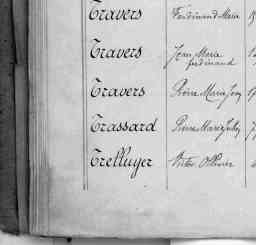 Travers Ferdinand Marie
Travers Jean Marie
ferdinand
Travers Pierre Marie
Trassard Pierre Marie
Trelluyer Victor Ollivier